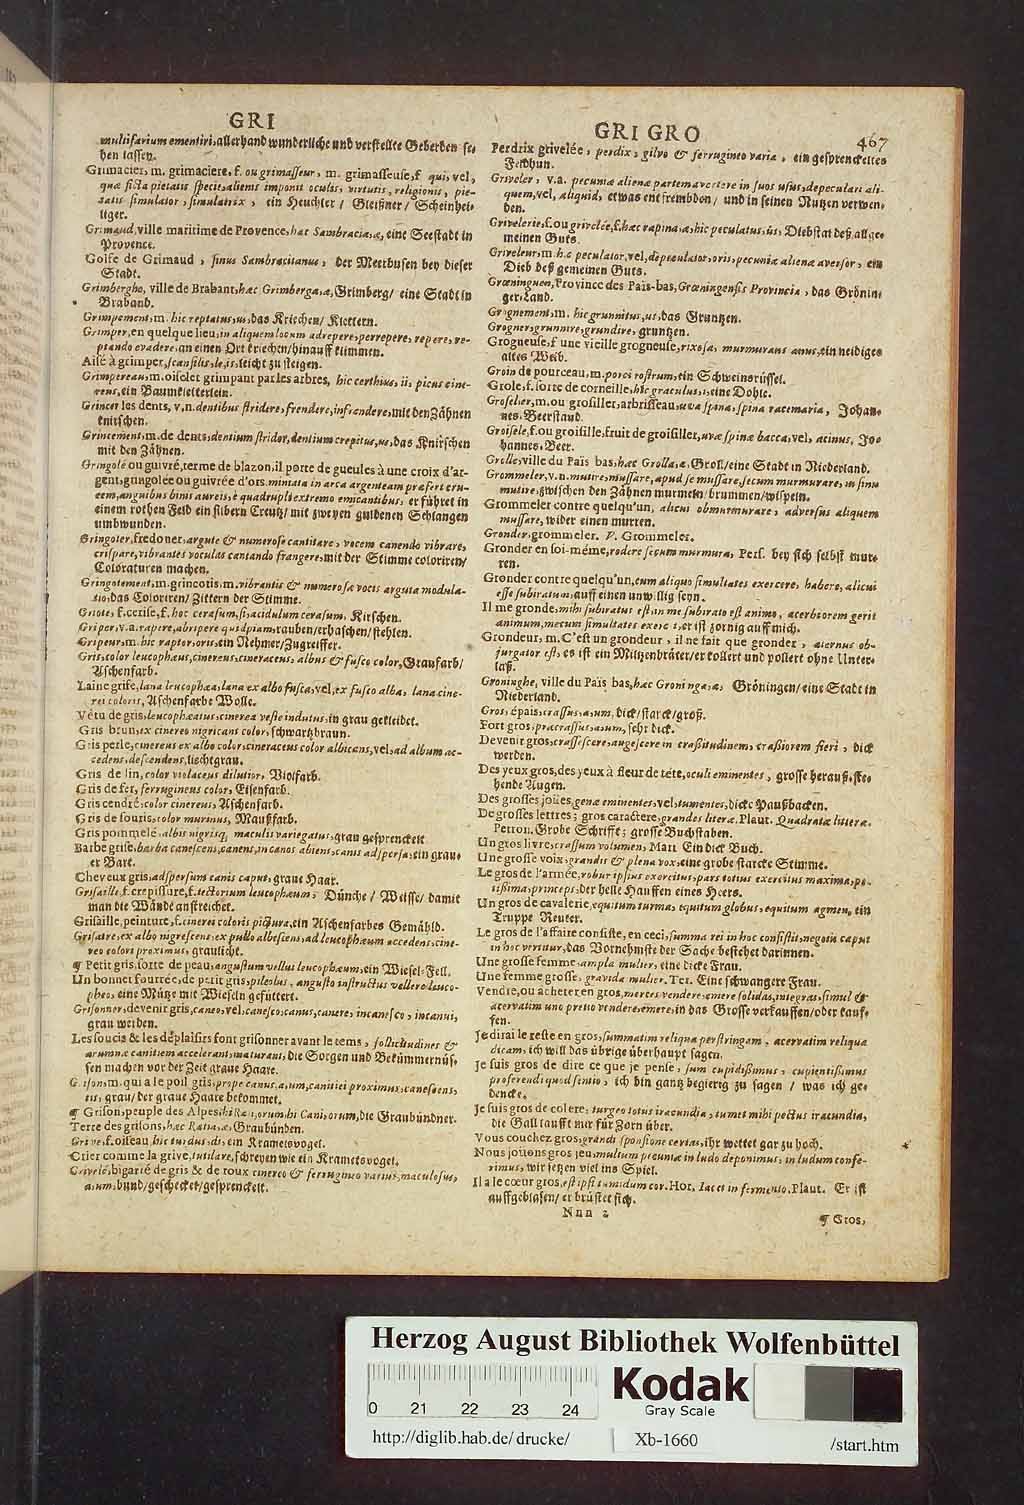 GRI
multifarium ementiri, allerhand wunderliche und verstellte Geberden se-
hen lassen.
Grimacier, m. grimaciere, f. ou grimasseur, m. grimasseuse, f qui, vel,
quæ ficta pietatis specie, alienis imponit oculis, virtutis, religionis, pie-
tatis simulator, simulatrix, ein Heuchler/ Gleißner/ Scheinhei-
liger.
Grimaud, ville maritime de Provence, hæc Sambracia, æ, eine Seestadt in
Provence.
Golfe de Grimaud, sinus Sambracitanus, der Meerbusen bey dieser
Stadt.
Grimberghe, ville de Brabant, hæc Grimberga, æ, Grimberg/ eine Stadt in
Braband.
Grimpement, m. hic reptatus, us, das Kriechen/ Klettern.
Grimper, en quelque lieu, in aliquem locum adrepere, perrepere, repere, re-
ptando evadere, an einen Ort kriechen/ hinauff klimmen.
Aisé à grimper, scansilis, le, is, leicht zu steigen.
Grimpereau, m. oiselet grimpant par les arbres, hic certhius, ii, picus cine-
reus, ein Baumkletterlein.
Grincer les dents, v.n. dentibus stridere, frendere, infrendere, mit den Zähnen
knirschen.
Grincement, m. de dents, dentium stridor, dentium crepitus, us, das Knirschen
mit den Zähnen.
Gringolé ou guivré, terme de blazon, il porte de gueules à une croix d'ar-
gent, gringolée ou guivrée d'ors, miniata in arca argenteam præfert cru-
cem, anguibus binis aureis, è quadrupli extremo emicantibus, er führet in
einem rothen Feld ein silbern Creutz/ mit zweyen guldenen Schlangen
umbwunden.
Gringoter, fredoner, argute & numerose cantitare, vocem canendo vibrare,
crispare, vibrantes voculas cantando frangere, mit der Stimme coloriren/
Coloraturen machen.
Gringotement, m. grincotis, m. vibrantis & numerosæ vocis arguta modula-
tio, das Coloriren/ Zittern der Stimme.
Griote, f. cerise, f. hoc cerasum, si, acidulum cerasum, Kirschen.
Griper, v.a. rapere, abripere quidpiam, rauben/ erhaschen/ stehlen.
Gripeur, m. hic raptor, oris, ein Nehmer/ Zugreiffer.
Gris, color leucophæus, cinereus, cineraceus, albus & fusco color, Graufarb/
Aschenfarb.
Laine grise, lana leucophæa, lana ex albo fusca, vel, ex fusco alba, lana cine-
rei coloris, Aschenfarbe Wolle.
Vétu de gris, leucophæatus, cinerea veste indutus, in grau gekleidet.
Gris brun, ex cinereo nigricans color, schwartzbraun.
Gris perle, cinereus ex albo color, cineraceus color albicans, vel, ad album ac-
cedens, descendens, liechtgrau.
Gris de lin, color violaceus dilutior, Violfarb.
Gris de fer, ferrugineus color, Eisenfarb.
Gris cendré, color cinereus, Aschenfarb.
Gris de souris, color murinus, Maußfarb.
Gris pommelé, albis nigrisq; maculis variegatus, grau gesprenckelt
Barbe grise, barba canescens, canens, in canos abiens, canis adspersa, ein grau-
er Bart.
Cheveux gris, adspersum canis caput, graue Haar.
Grisaille, f. crepissure, f. tectorium leucophæum, Dünche/ Weisse/ damit
man die Wände anstreichet.
Grisaille, peinture, f. cinerei coloris pictura, ein Aschenfarbes Gemähld.
Grisatre, ex albo nigrescens, ex pullo albescens, ad leucophæum accedens, cine-
reo colori proximus, graulicht.
¶ Petit gris, sorte de peau, angustum vellus leucophæum, ein Wiesel-Fell.
Un bonnet fourrée, de petit gris, pileolus, angusto instructus vellere leuco-
phæo, eine Mütze mit Wieseln gefüttert.
Grisonner, devenir gris, caneo, vel, canesco, canus, canere, incanesco, incanui,
grau werden.
Les soucis & les déplaisirs font grisonner avant le tems, sollicitudines &
ærumnæ canitiem accelerant, maturant, die Sorgen und Bekümmernüs-
sen machen vor der Zeit graue Haare.
Grison, m. qui a le poil gris, prope canus, a, um, canitiei proximus, canescens,
tis, grau/ der graue Haare bekommet.
¶ Grison, peuple des Alpes, hi Ræti, orum, hi Cani, orum, die Graubündner.
Terre des grisons, hæc Rætia, æ, Graubünden.
Grive, f. oiseau, hic turdus, di, ein Krametsvogel.
Crier comme la grive, tutilare, schreyen wie ein Krametsvogel.
Grivelé, bigarié de gris & de roux cinereo & ferrugineo varius, maculosus,
a, um, bund/ gescheckt/ gesprenckelt.
GRI GRO
467
Perdrix grivelée, perdix, gilvo & ferrugineo varia, ein gesprenckeltes
Feldhun.
Griveler, v.a. pecuniæ alienæ partem avertere in suos usus, depeculari ali-
quem, vel, aliquid, etwas entfrembden/ und in seinen Nutzen verwen-
den.
Grivelerie, f. ou grivelée, f. hæc rapina, æ, hic peculatus, ûs, Diebstal deß allge-
meinen Guts.
Griveleur, m. hic peculator, vel, depeculator, oris, pecuniæ alienæ aversor, ein
Dieb deß gemeinen Guts.
Grœninguen, Province des Païs-bas, Grœningensis Provincia, das Grönin-
ger-Land.
Grognement, m. hic grunnitus, us, das Gruntzen.
Grogner, grunnire, grundire, gruntzen.
Grogneuse, f une vieille grogneuse, rixosa, murmurans anus, ein neidiges
altes Weib.
Groin de pourceau, m. porci rostrum, ein Schweinsrüssel.
Grole, f. sorte de corneille, hic graculus, i, eine Dohle.
Groselier, m. ou grosillet, arbrisseau, uva spina, spina racemaria, Johan-
nes-Beerstaud.
Groisele, f. ou groisille, fruit de groisillet, uvæ spinæ bacca, vel, acinus, Jo-
hannes-Beer.
Grolle, ville du Païs bas, hæc Grolla, æ, Groll/ eine Stadt in Niederland.
Grommeler, v.n. mutire, mussare, apud se mussare, secum murmurare, in sinu
mutire, zwischen den Zähnen murmeln/ brummen/ wispeln.
Grommeler contre quelqu'un, alicui obmurmurare, adversus aliquem
mussare, wider einen murren.
Gronder, grommeler. V. Grommeler.
Gronder en soi-même, rodere secum murmura, Pers. bey sich selbst mur-
ren.
Gronder contre quelqu'un, cum aliquo simultates exercere, habere, alicui
esse subiratum, auff einen unwillig seyn.
Il me gronde, mihi subiratus est, in me subirato est animo, acerbiorem gerit
animum, mecum simultates exercet, er ist zornig auff mich.
Grondeur, m. C'est un grondeur, il ne fait que gronder, æternus ob-
jurgator est, es ist ein Miltzenbräter/ er kollert und pollert ohne Unter-
laß.
Groninghe, ville du Païs bas, hæc Groninga, æ, Gröningen/ eine Stadt in
Niederland.
Gros, épais, crassus, a, um, dick/ starck/ groß.
Fort gros, præcrassus, a, um, sehr dick.
Devenir gros, crassescere, augescere in crassitudinem, crassiorem fieri, dick
werden.
Des yeux gros, des yeux à fleur de tête, oculi eminentes, grosse herauß-ste-
hende Augen.
Des grosses joües, genæ eminentes, vel, tumentes, dicke Paußbacken.
De grosses lettres; gros caractere, grandes literæ. Plaut. Quadratæ litteræ.
Petron. Grobe Schrifft; grosse Buchstaben.
Un gros livre, crassum volumen, Mart. Ein dick Buch.
Une grosse voix, grandis & plena vox, eine grobe starcke Stimme.
Le gros de l'armée, robur ipsius exercitus, pars totius exercitus maxima, po-
tissima, princeps, der helle Hauffen eines Heers.
Un gros de cavalerie, equitum turma, equitum globus, equitum agmen, ein
Truppe Reuter.
Le gros de l'affaire consiste, en ceci, summa rei in hoc consistit, negotii caput
in hoc vertitur, das Vornehmste der Sache bestehet darinnen.
Une grosse femme, ampla mulier, eine dicke Frau.
Une femme grosse, gravida mulier. Ter. Eine schwangere Frau.
Vendre, ou acheter en gros, merces vendere, emere solidas, integras, simul &
acervatim uno pretio vendere, emere, in das Grosse verkauffen/ oder kauf-
fen.
Je dirai le reste en gros, summatim reliqua perstringam, acervatim reliqua
dicam, ich will das übrige überhaupt sagen.
Je suis gros de dire ce que je pense, sum cupidissimus, cupientissimus
proferendi quod sentio, ich bin gantz begierig zu sagen/ was ich ge-
dencke.
Je suis gros de colere, turgeo totus iracundia, tumet mihi pectus iracundia,
die Gall laufft mir für Zorn über.
Vous couchez gros, grandi sponsione certas, ihr wettet gar zu hoch.
Nous jouons gros jeu, multum pecuniæ in ludo deponimus, in ludum confe-
rimus, wir setzen viel ins Spiel.
Il a le cœur gros, est ipsi tumidum cor. Hor. Iacet in fermento. Plaut. Er ist
auffgeblasen/ er brüstet sich.
Nnn 2
¶ Gros,
Herzog August Bibliothek Wolfenbüttel
0 21 22 23 24
Kodak
Gray Scale
http://diglib.hab.de/drucke/
Xb-1660
/start.htm